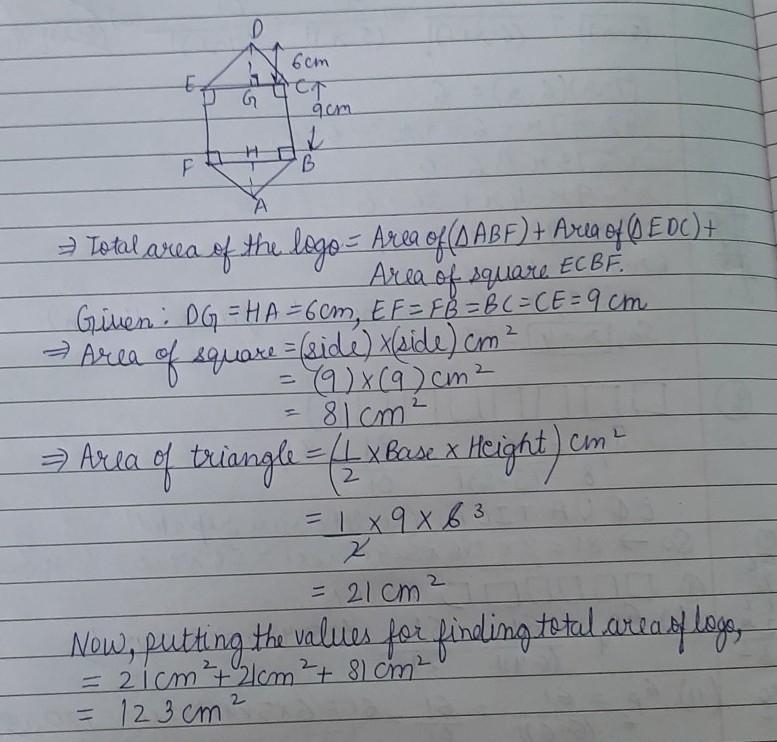 D
6cm
E G C
9cm
F H B
A
⇒ Total area of the logo = Area of (ΔABF) + Area of (ΔEDC) +
Area of square ECBF.
Given: DG = HA = 6cm, EF = FB = BC = CE = 9 cm
⇒ Area of square = (side) × (side) cm²
= (9) × (9) cm²
= 81 cm²
⇒ Area of triangle = (1/2 × Base × Height) cm²
= 1/2 × 9 × 6 3
= 21 cm²
Now, putting the values for finding total area of logo,
= 21cm² + 21cm² + 81 cm²
= 123 cm²